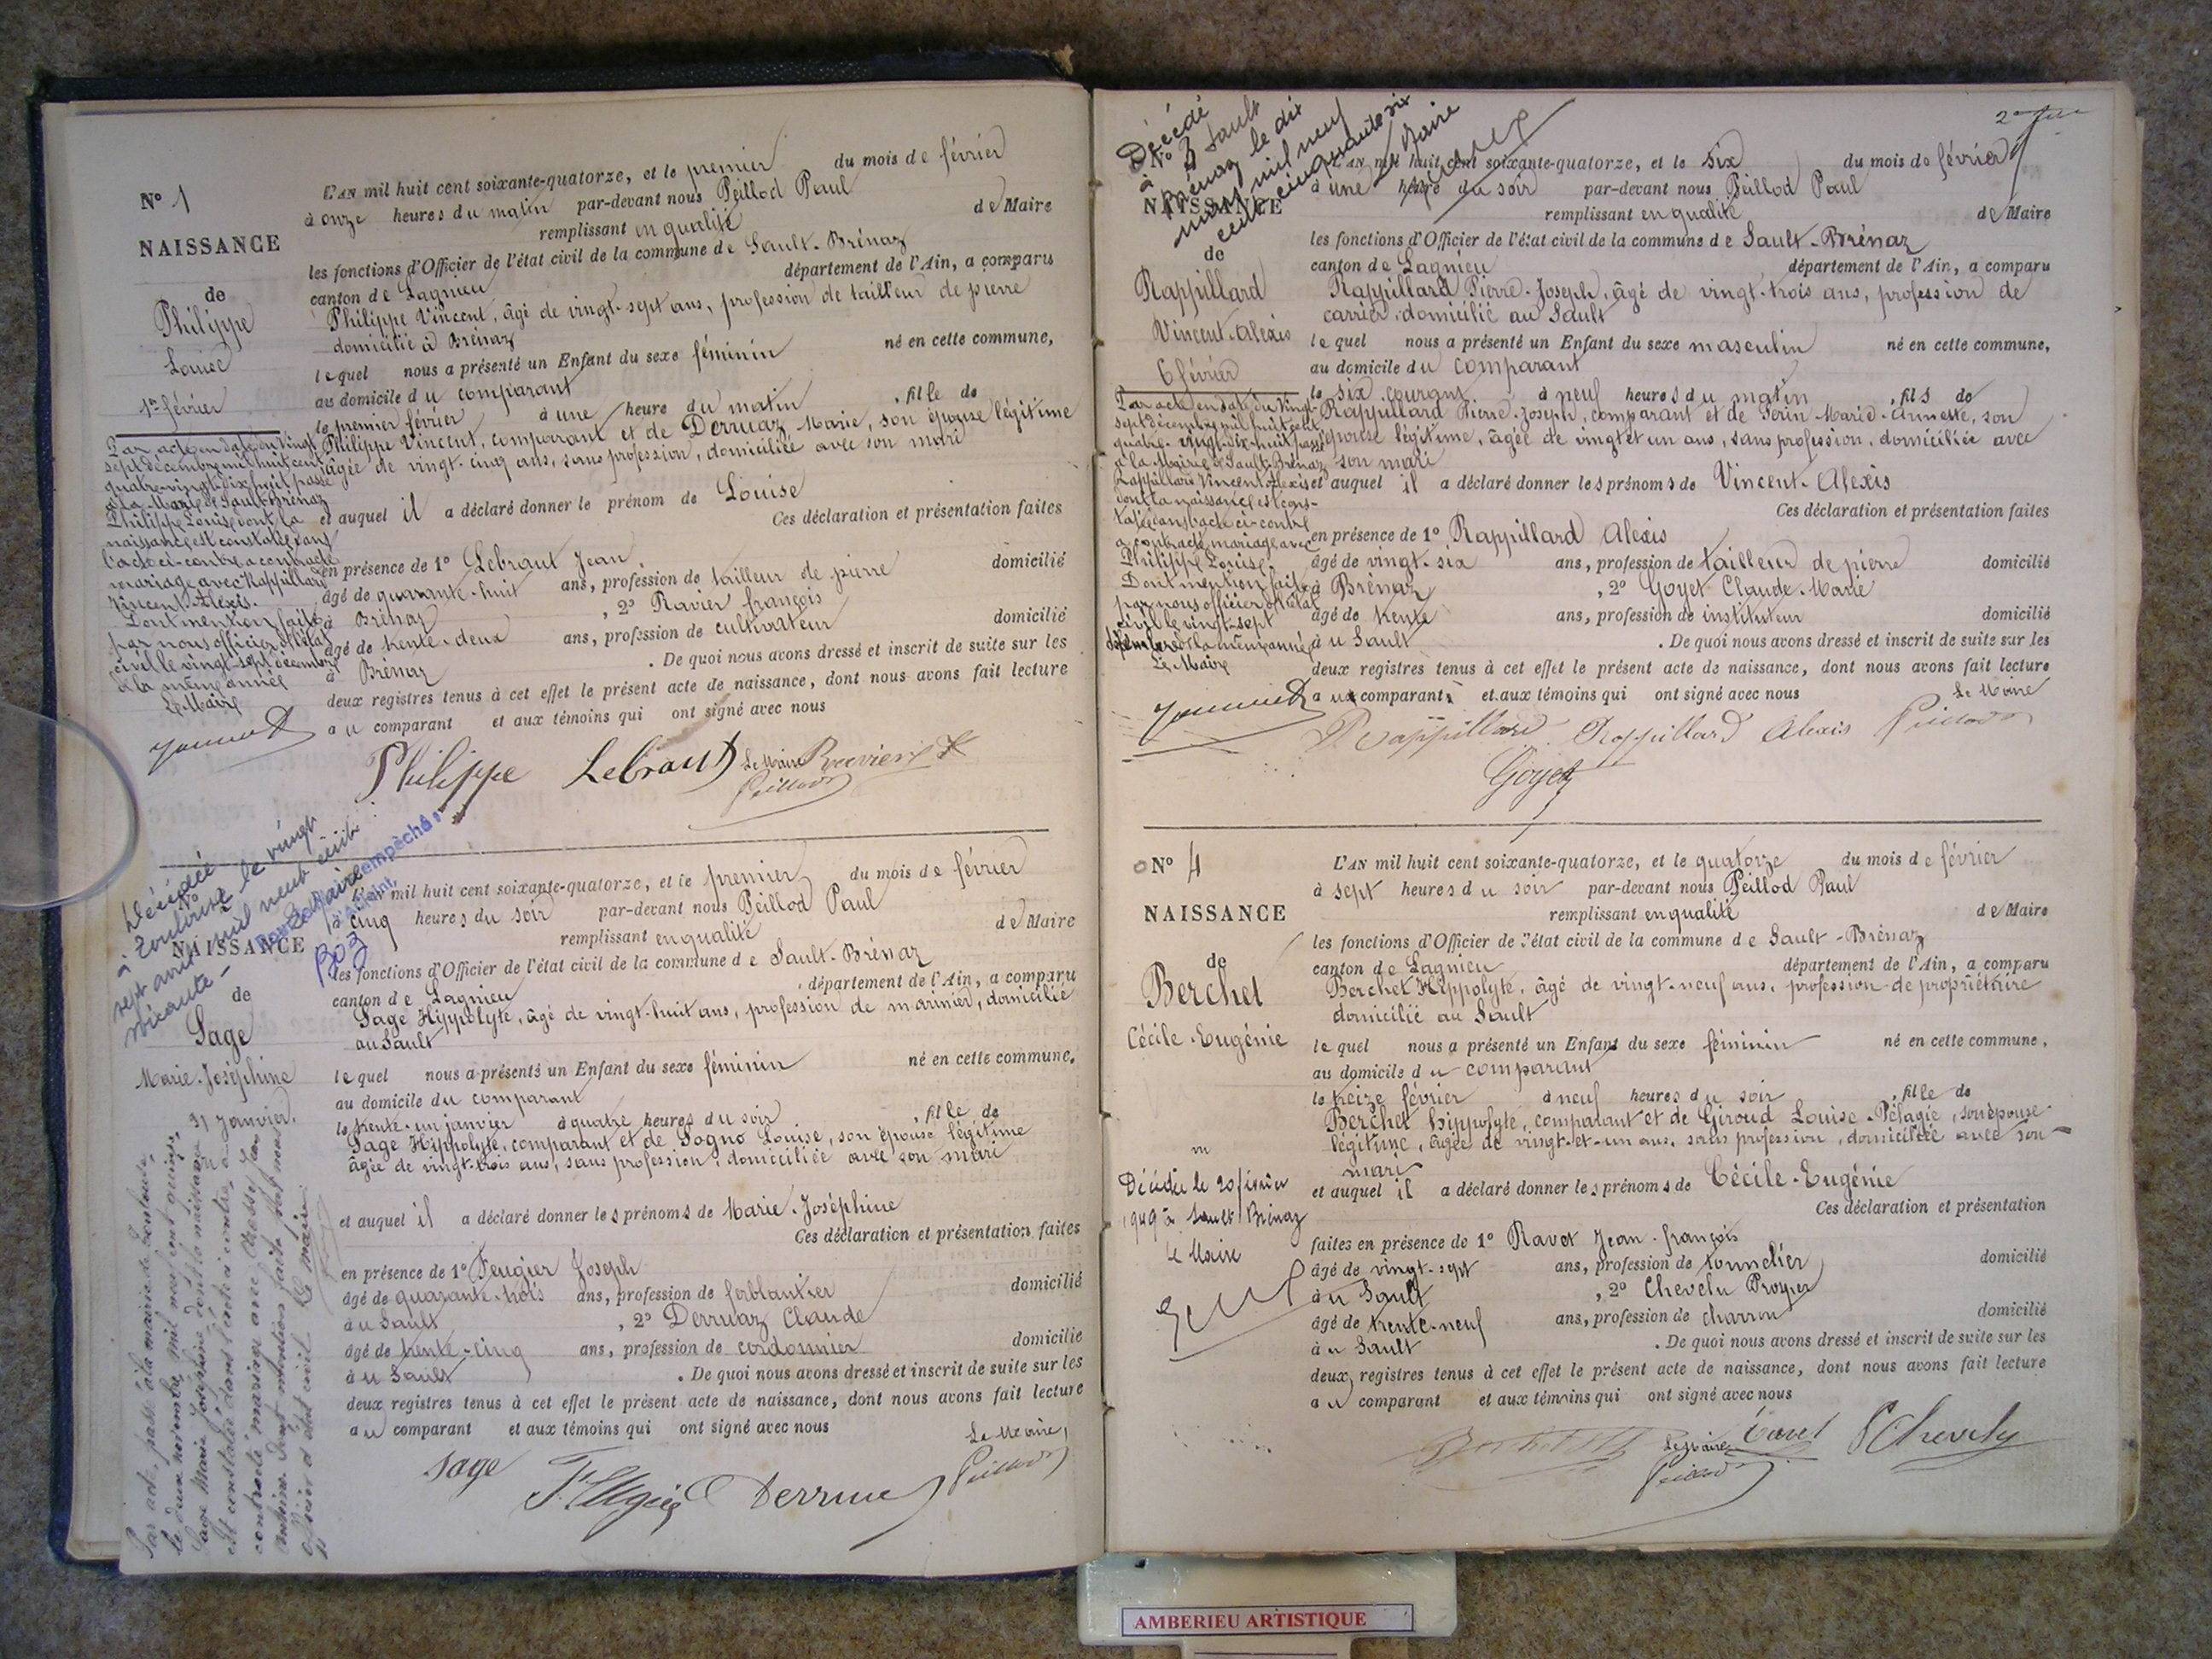 N° 1
NAISSANCE
de
Philippe
Louise
1er février
L'AN mil huit cent soixante-quatorze, et le premier du mois de février
à onze heures du matin par-devant nous Peillod Paul
remplissant en qualité de Maire
les fonctions d'Officier de l'état civil de la commune de Sault-Brénaz
canton de Lagnieu département de l'Ain, a comparu
Philippe Vincent, âgé de vingt-sept ans, profession de tailleur de pierre
domicilié à Brénaz
lequel nous a présenté un Enfant du sexe féminin né en cette commune,
au domicile du comparant
le premier février à une heure du matin, fille de
Philippe Vincent, comparant et de Derruaz Marie, son épouse légitime
âgée de vingt-cinq ans, sans profession, domiciliée avec son mari
et auquel il a déclaré donner le prénom de Louise
Ces déclaration et présentation faites
en présence de 1° Lebraut Jean,
âgé de quarante-huit ans, profession de tailleur de pierre domicilié
à Brénaz, 2° Ravier françois
âgé de trente-deux ans, profession de cultivateur domicilié
à Brénaz. De quoi nous avons dressé et inscrit de suite sur les
deux registres tenus à cet effet le présent acte de naissance, dont nous avons fait lecture
au comparant et aux témoins qui ont signé avec nous
Philippe Lebraut Le Maire
Peillod
Par acte en date du vingt
sept décembre mil huit cent
quatre-vingt-dix-huit passé
à la Mairie de Sault-Brénaz
Philippe Louise dont la
naissance est constatée dans
l'acte ci-contre a contracté
mariage avec Rappillard
Vincent-Alexis.
Dont mention faite
par nous officier de l'état
civil le vingt-sept décembre
de la même année
Le Maire
Décédée
à Toulouse le vingt
sept avril mil neuf cent
soixante-
Le Maire empêché:
L'Adjoint,
Boz
NAISSANCE
de
Sage
Marie-Joséphine
31 Janvier.
L'AN mil huit cent soixante-quatorze, et le premier du mois de février
à cinq heures du soir par-devant nous Peillod Paul
remplissant en qualité de Maire
les fonctions d'Officier de l'état civil de la commune de Sault-Brénaz
canton de Lagnieu, département de l'Ain, a comparu
Sage Hippolyte, âgé de vingt-huit ans, profession de marinier, domicilié
au Sault
lequel nous a présenté un Enfant du sexe féminin né en cette commune,
au domicile du comparant
le trente-un janvier à quatre heures du soir, fille de
Sage Hippolyte, comparant et de Sogno Louise, son épouse légitime
âgée de vingt-trois ans, sans profession, domiciliée avec son mari
et auquel il a déclaré donner les prénoms de Marie-Joséphine
Ces déclaration et présentation faites
en présence de 1° Feugier Joseph
âgé de quarante-trois ans, profession de ferblantier domicilié
au Sault, 2° Derruaz Claude
âgé de trente-cinq ans, profession de cordonnier domicilié
au Sault. De quoi nous avons dressé et inscrit de suite sur les
deux registres tenus à cet effet le présent acte de naissance, dont nous avons fait lecture
au comparant et aux témoins qui ont signé avec nous
Le Maire,
Sage Peillod
Par acte passé à la mairie de Toulouse,
le deux novembre mil neuf cent quinze,
Sage Marie Joséphine dont la naissance
est constatée dans l'acte ci contre, a
contracté mariage avec
Antoine. Dont mention faite par nous
officier d'état civil. Le maire
2e
Décédé
à Sault
Brénaz le dix
mars mil neuf
cent cinquante six
Le Maire
N° 3
NAISSANCE
de
Rappillard
Vincent-Alexis
6 février
L'AN mil huit cent soixante-quatorze, et le six du mois de février
à une heure du soir par-devant nous Peillod Paul
remplissant en qualité de Maire
les fonctions d'Officier de l'état civil de la commune de Sault-Brénaz
canton de Lagnieu département de l'Ain, a comparu
Rappillard Pierre-Joseph, âgé de vingt-trois ans, profession de
carrier, domicilié au Sault
lequel nous a présenté un Enfant du sexe masculin né en cette commune,
au domicile du comparant
le six courant à neuf heures du matin, fils de
Rappillard Pierre-Joseph, comparant et de Perin Marie-Annette, son
épouse légitime, âgée de vingt et un ans, sans profession, domiciliée avec
son mari
et auquel il a déclaré donner les prénoms de Vincent-Alexis
Ces déclaration et présentation faites
en présence de 1° Rappillard Alexis
âgé de vingt-six ans, profession de tailleur de pierre domicilié
à Brénaz, 2° Goyet Claude-Marie
âgé de trente ans, profession de instituteur domicilié
au Sault. De quoi nous avons dressé et inscrit de suite sur les
deux registres tenus à cet effet le présent acte de naissance, dont nous avons fait lecture
aux comparants et aux témoins qui ont signé avec nous Le Maire
Rappillard Rappillard Alexis Peillod
Goyet
Par acte en date du vingt-
sept décembre mil huit cent
quatre-vingt-dix-huit passé
à la Mairie de Sault-Brénaz
Rappillard Vincent Alexis
dont la naissance est cons-
tatée dans l'acte ci-contre
a contracté mariage avec
Philippe Louise.
Dont mention faite
par nous officier de l'état
civil le vingt-sept
décembre de la même année
Le Maire
N° 4
NAISSANCE
de
Berchet
Cécile-Eugénie
L'AN mil huit cent soixante-quatorze, et le quatorze du mois de février
à sept heures du soir par-devant nous Peillod Paul
remplissant en qualité de Maire
les fonctions d'Officier de l'état civil de la commune de Sault-Brénaz
canton de Lagnieu département de l'Ain, a comparu
Berchet Hippolyte, âgé de vingt-neuf ans, profession de propriétaire
domicilié au Sault
lequel nous a présenté un Enfant du sexe féminin né en cette commune,
au domicile du comparant
le treize février à neuf heures du soir, fille de
Berchet hippolyte, comparant et de Giroud Louise-Pélagie, son épouse
légitime, âgée de vingt-et-un ans, sans profession, domiciliée avec son
mari
et auquel il a déclaré donner les prénoms de Cécile-Eugénie
Ces déclaration et présentation
faites en présence de 1° Ravot Jean-françois
âgé de vingt-sept ans, profession de tonnelier domicilié
au Sault, 2° Chevelu Prosper
âgé de trente-neuf ans, profession de charron domicilié
au Sault. De quoi nous avons dressé et inscrit de suite sur les
deux registres tenus à cet effet le présent acte de naissance, dont nous avons fait lecture
au comparant et aux témoins qui ont signé avec nous
Le Maire PChevelu
Peillod
Décédée le 20 février
1949 à Sault Brénaz
Le Maire
AMBERIEU ARTISTIQUE